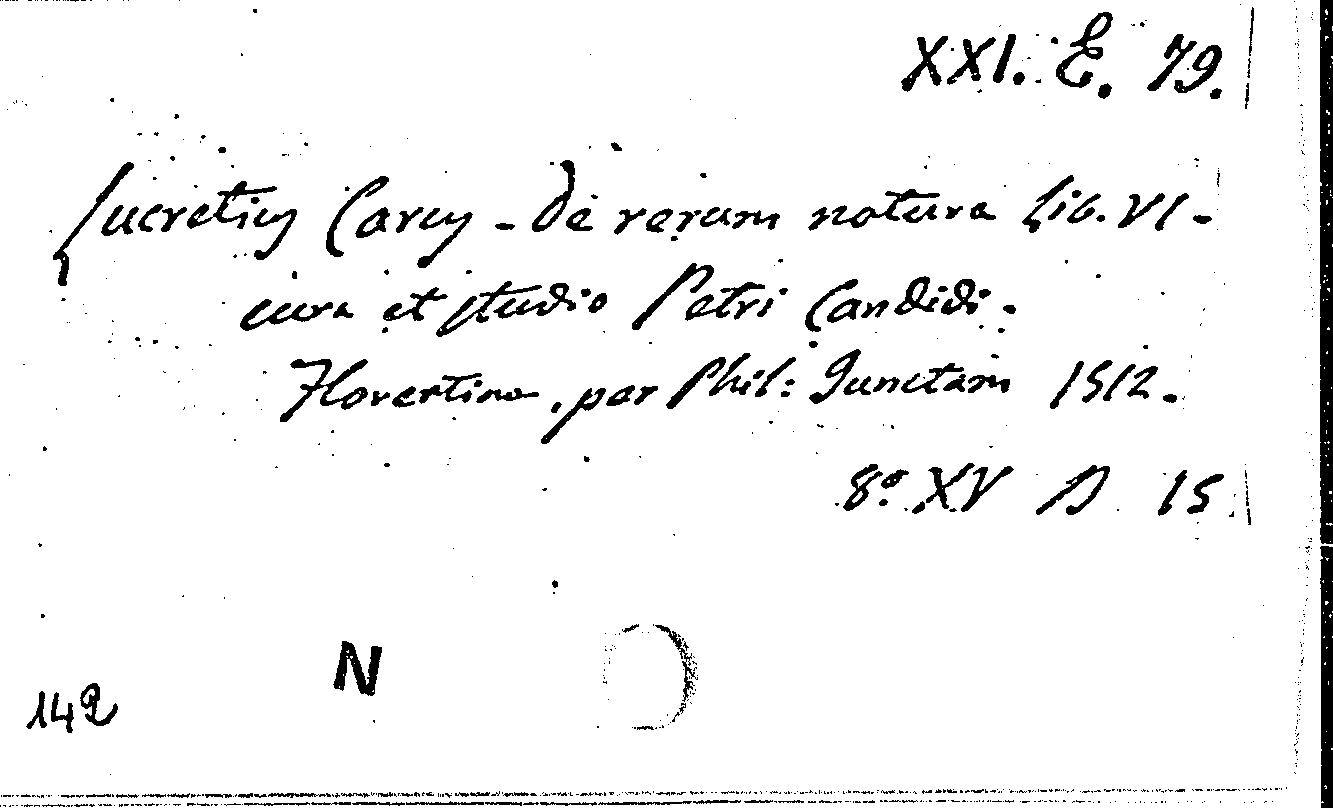 XXI. E. 79.
Lucretius Carus - De rerum natura Lib. VI -
cura et studio Petri Candidi.
Florentina, per Phil: Junctam 1512.
8° XV D 15
N
142